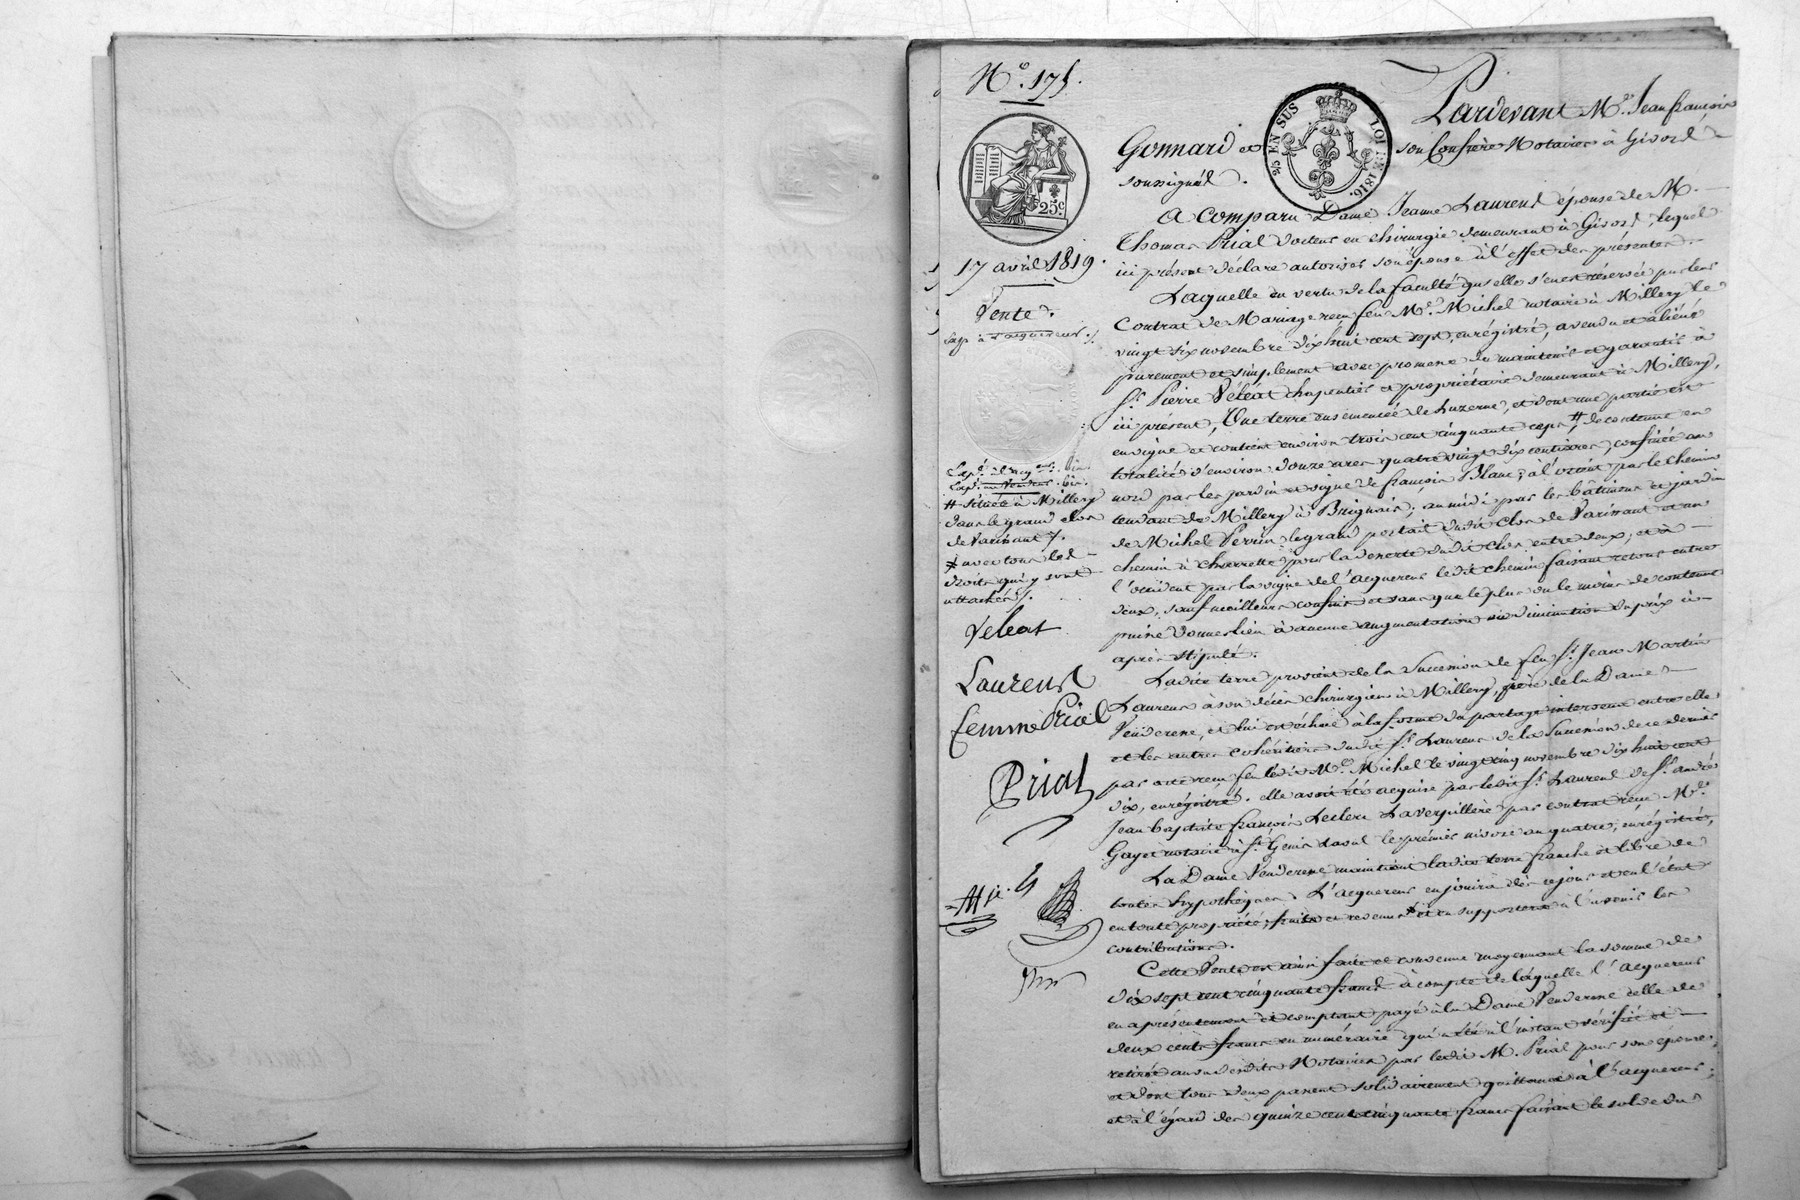 N.° 175.
25 EN SUS LOI DE 1816.
25.c
17 avril 1819.
Vente.
Exp. à l'acquéreur
# située à Millery
dans le grand clos
de Parissant /.
⁂ avec tous les
droits qui y sont
attachés /.
Veléat
Laurent
femme Prial
Prial
Pardevant M.e Jean françois
Gonnard et son Confrère Notaires à Givors
soussignés.
A comparu Dame Jeanne Laurent épouse de M.
Thomas Prial docteur en chirurgie demeurant à Givors, lequel
ici présent déclare autoriser son épouse à l'effet des présentes.
Laquelle en vertu de la faculté qu'elle s'en est réservée par leur
Contrat de Mariage reçu feu M.e Michel notaire à Millery le
vingt six novembre dix huit cent sept, enrégistré, a vendu et aliéné
purement et simplement avec promesse de maintenir et garantir à
S.r Pierre Veléat charpentier et propriétaire demeurant à Millery,
ici présent, Une terre ensemencée de luzerne, et dont une partie est
en vigne et contient environ trois cent cinquante ceps, # de contenue en
totalité d'environ douze ares quatre vingt dix centiares; confinée au
nord par les jardin et vigne de françois Blanc; à l'orient par le chemin
tendant de Millery à Brignais; au midi par les bâtimens et jardin
de Michel Perrin le grand portail dudit clos de Parissant et un
chemin à charrette pour la desserte dudit clos entre deux; et à
l'occident par la vigne de l'acquereur ledit chemin faisant retour entre
deux, sauf meilleurs confins et sans que le plus ou le moins de contenue
puisse donner lieu à aucune augmentation ni diminution du prix ci-
après stipulé.
Ladite terre provient de la Succession de feu S.r Jean Martin
Laurent à son décès chirurgien à Millery, père de la Dame
Venderesse, et lui est échue à la forme du partage intervenu entre elle
et les autres cohéritiers dudit S.r Laurent de la Succession de ce dernier
par acte reçu feu ledit M.e Michel le vingt cinq novembre dix huit cent
dix, enrégistré. elle avait été acquise par ledit S.r Laurent de S.r andré
Jean baptiste françois Leclerc Laverpillère par contrat reçu M.e
Gayet notaire à S.t Genis Laval le premier nivose an quatre, enrégistré.
La Dame Venderesse maintient ladite terre franche et libre de
toutes hypothèques. L'acquereur en jouira dès ce jour et en l'état
en toute propriété, fruits et revenus ⁂ et en supportera à l'avenir les
contributions.
Cette Vente est ainsi faite et convenue moyennant la somme de
dix sept cent cinquante francs à compte de laquelle l'acquereur
en a présentement et comptant payé à la Dame Venderesse celle de
deux cents francs en numéraire qui a été à l'instant vérifié et
retiré au vu desdits Notaires par ledit M. Prial pour son épouse,
et dont tous deux passent solidairement quittance à l'acquereur;
et à l'égard des quinze cent cinquante francs faisant le solde du